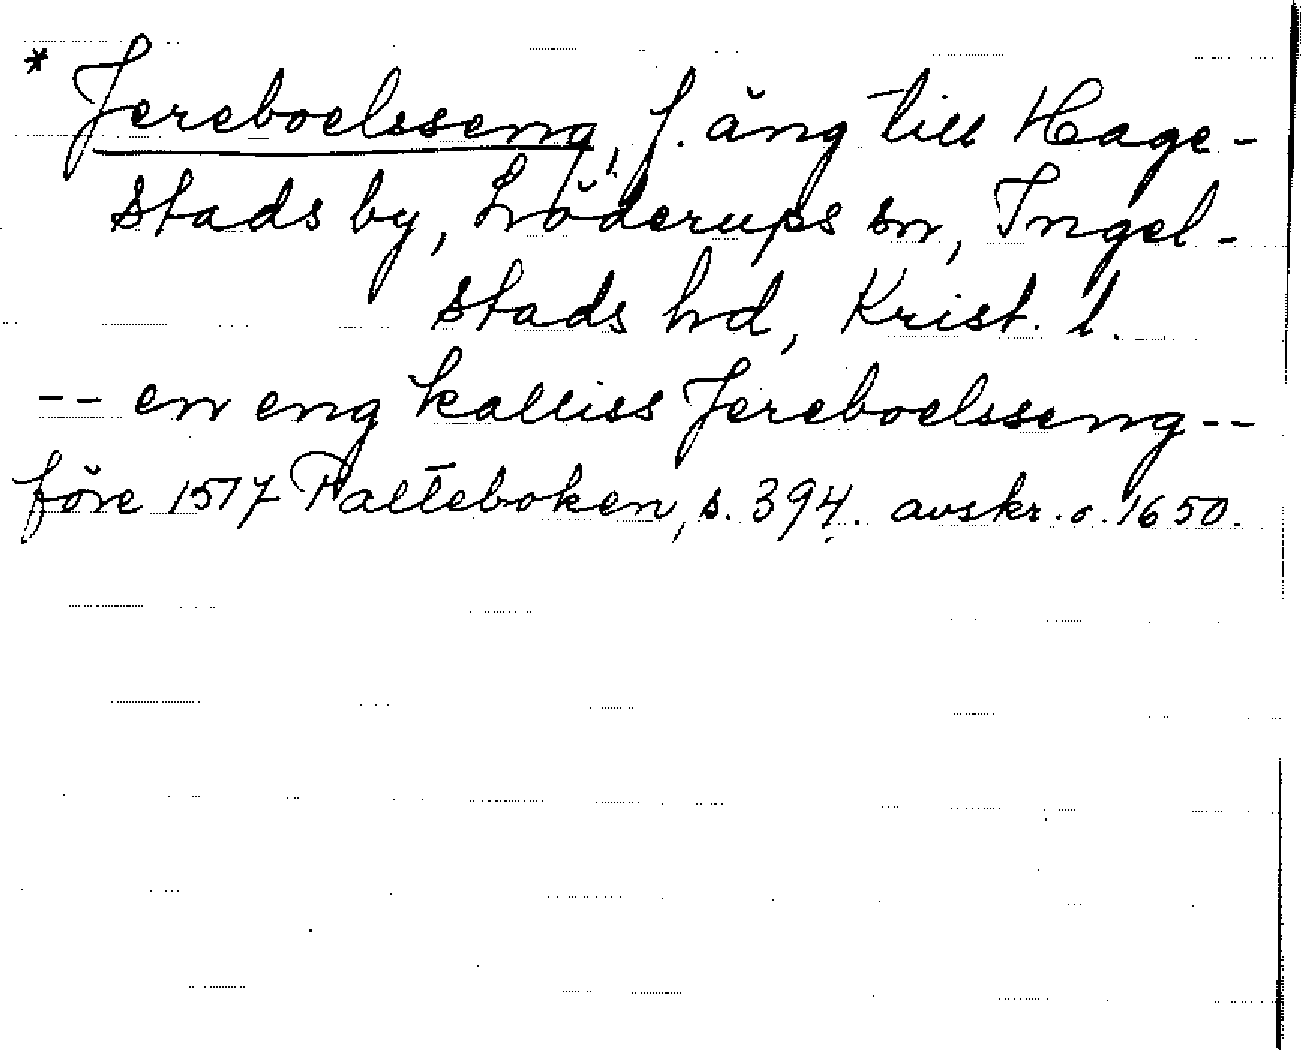 * Jereboelsseng, f. äng till Hage-
stads by, Löderups sn, Ingel-
stads hd, Krist. l.
-- en eng kalliss Jereboelsseng --
före 1517 Palteboken, s. 394. avskr. o. 1650.